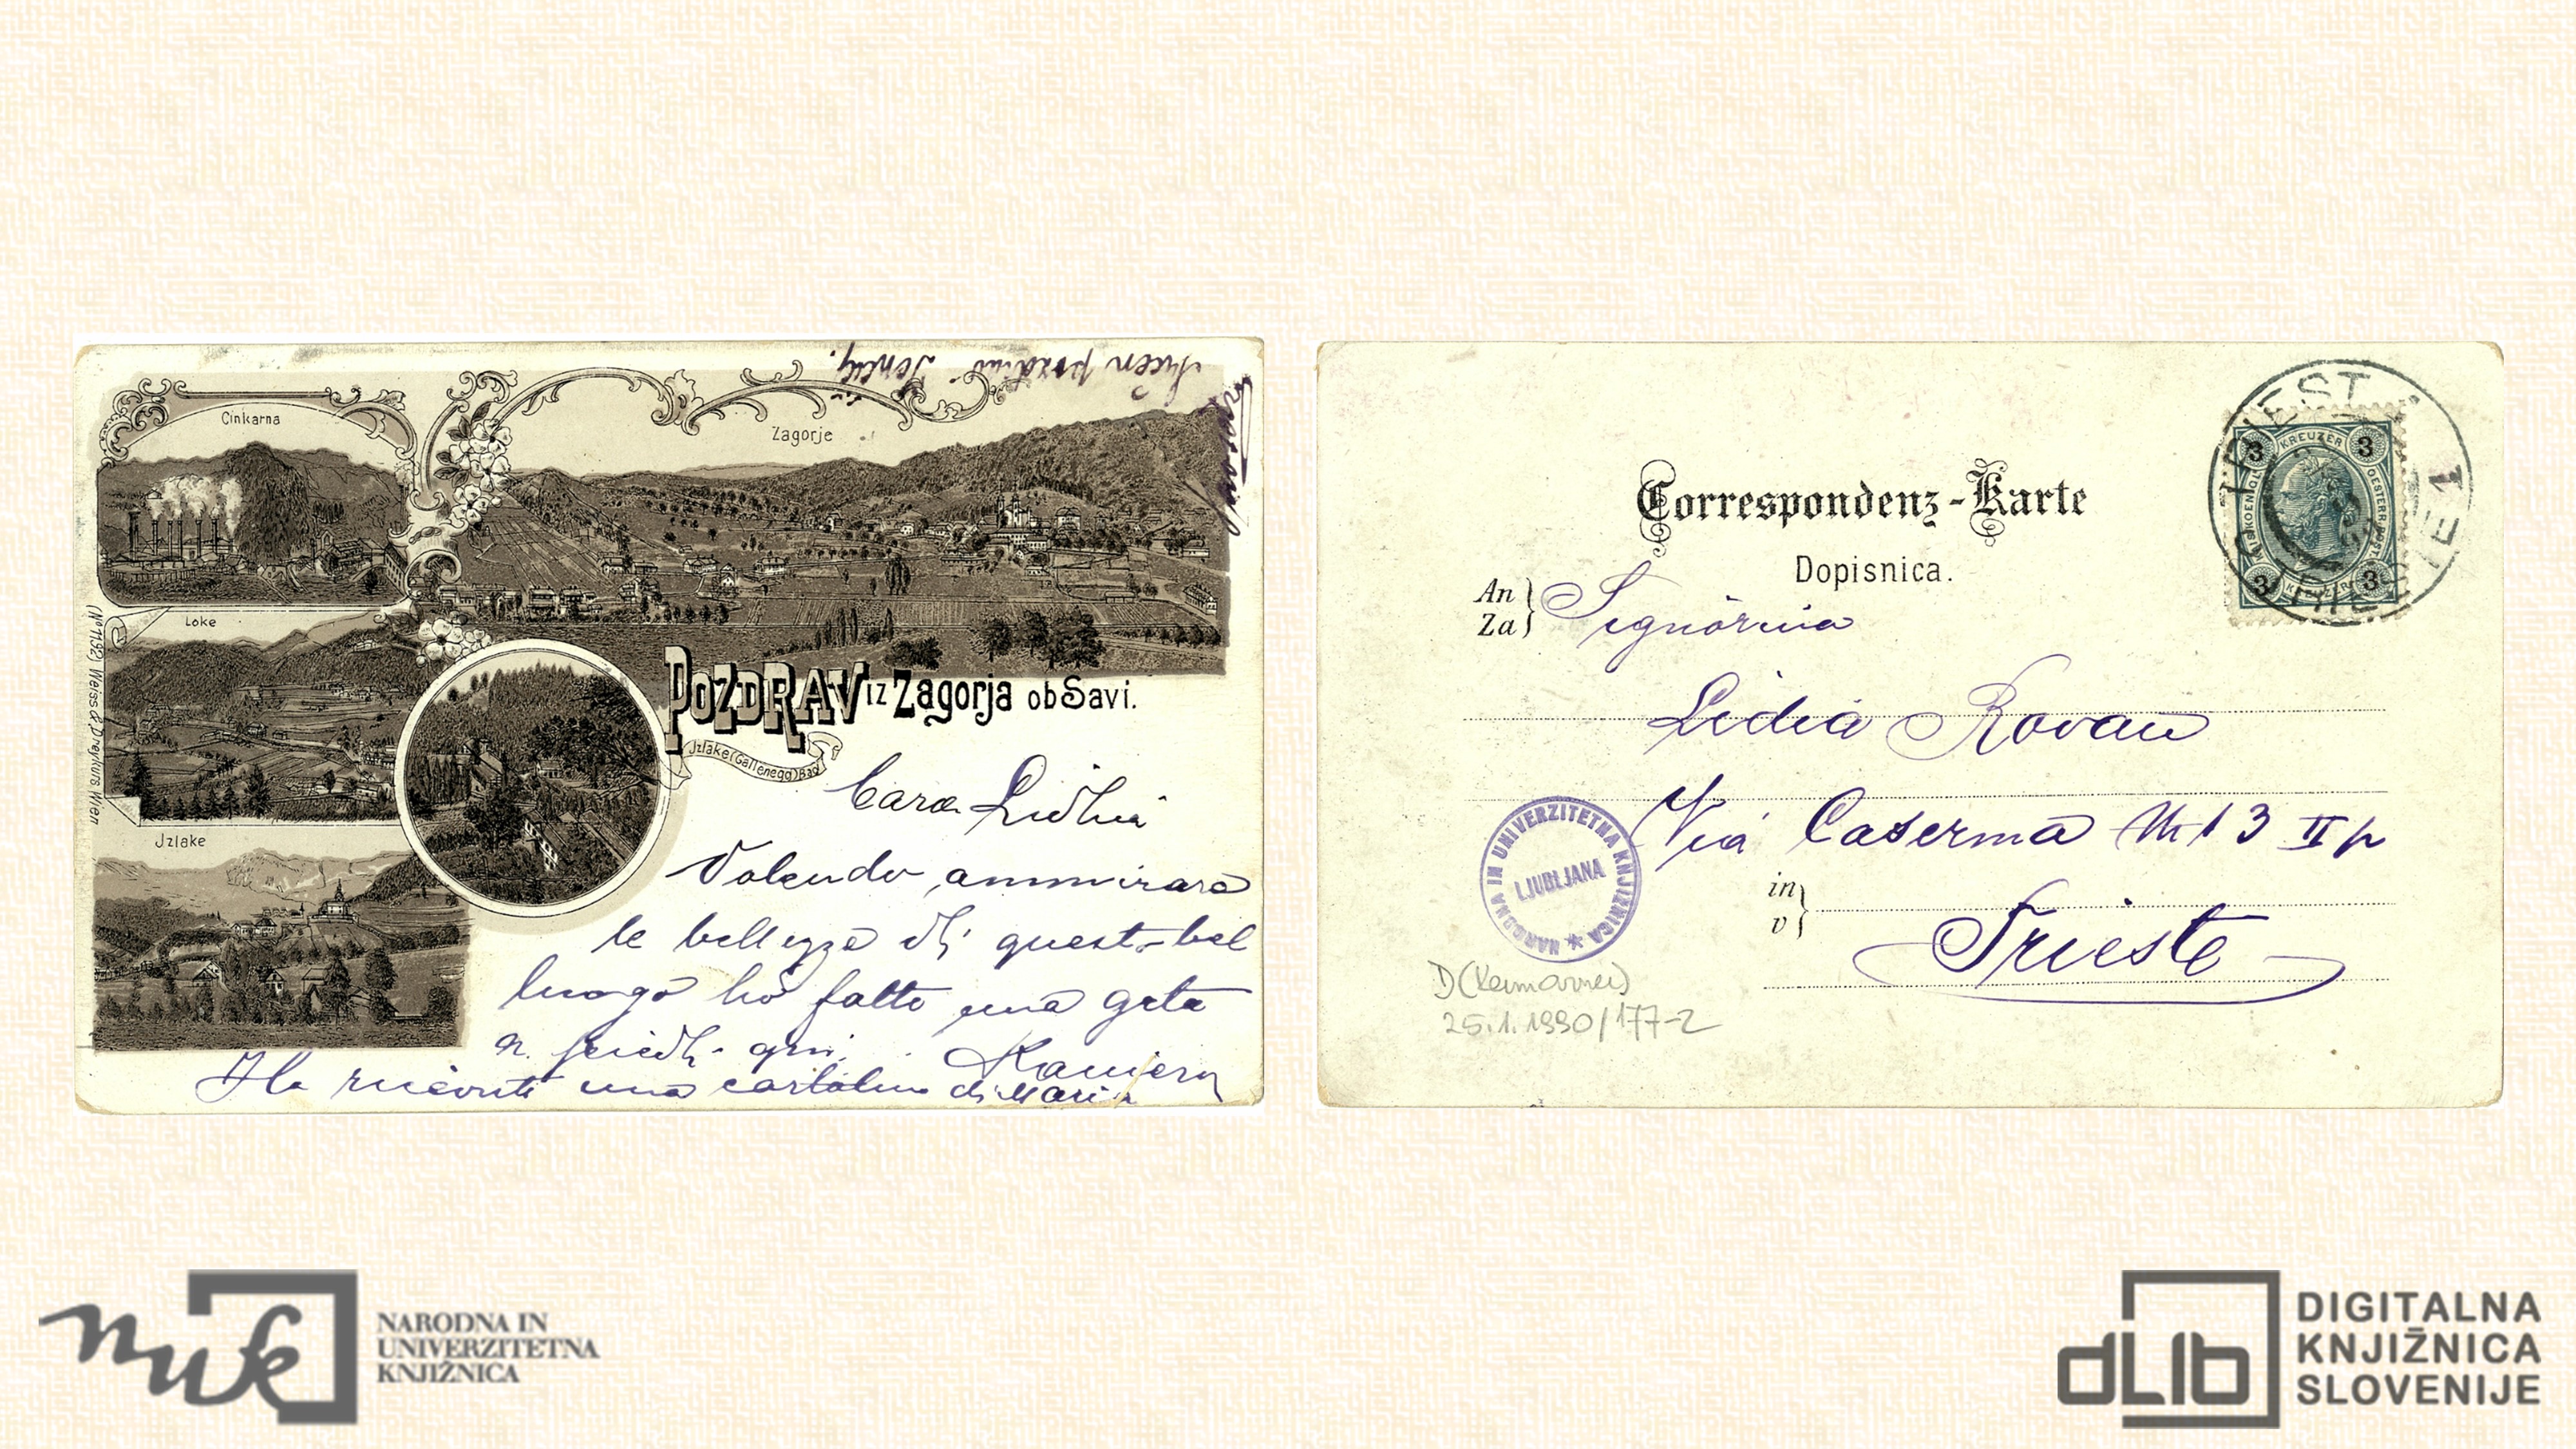 Cinkarna
Zagorje
Loke
Jzlake
(No 1192) Weiss & Dreykurs Wien
POZDRAV iz Zagorja ob Savi.
Jzlake (Gallenegg) Bad
Cara Lidia
Volendo ammirare
le bellezze di questo bel
luogo ho fatto una gita
Ha ricevuto una cartolina di Maria
Correspondenz-Karte
Dopisnica.
An
Za
Signorina
Lidia Rovan
Via Caserma 13 II p
in
v
Trieste
TRIEST
TRIESTE 1
KREUZER
3 3
3 3
NARODNA IN UNIVERZITETNA KNJIŽNICA
LJUBLJANA
25.1.1990/177-2
nuk
NARODNA IN
UNIVERZITETNA
KNJIŽNICA
dLib
DIGITALNA
KNJIŽNICA
SLOVENIJE